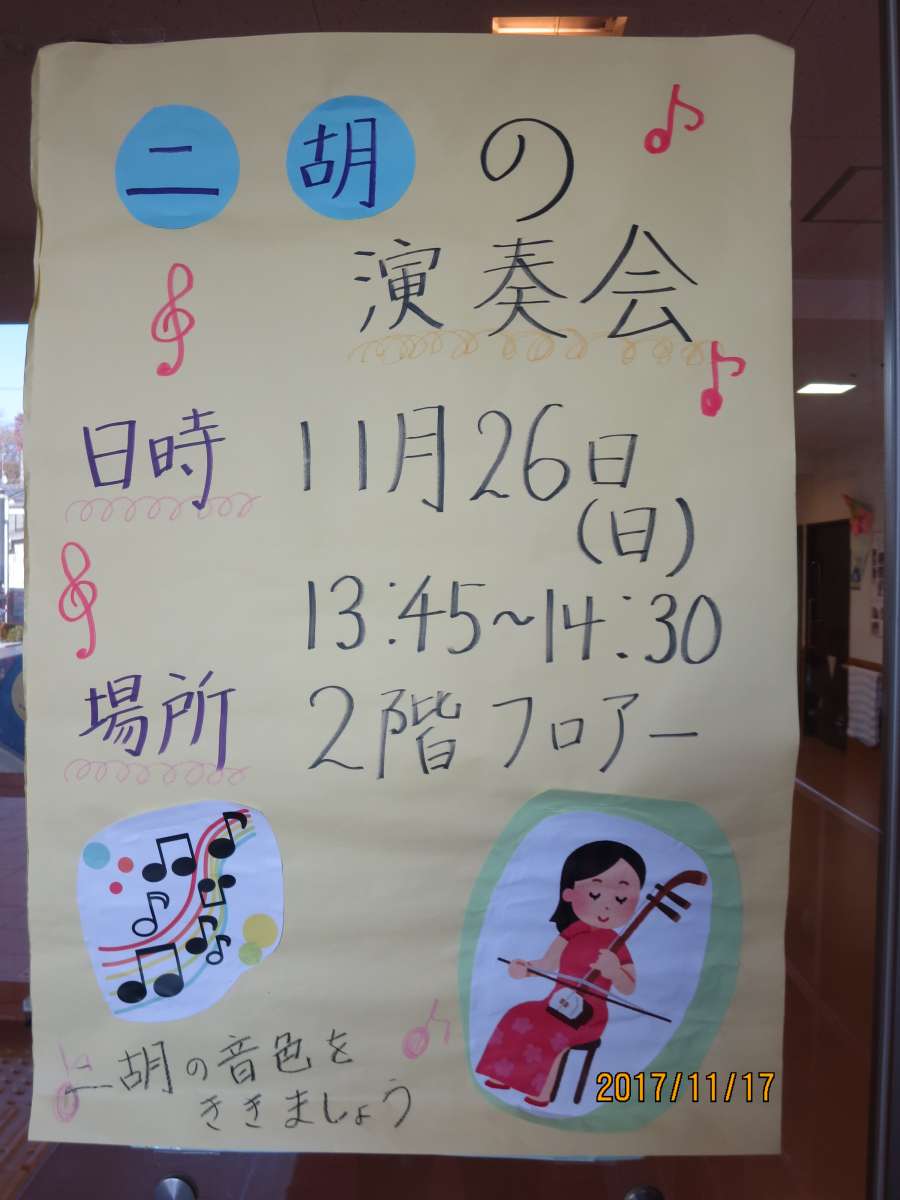 二胡の
演奏会
日時 11月26日
(日)
13:45~14:30
場所 2階フロアー
二胡の音色を
ききましょう
2017/11/17